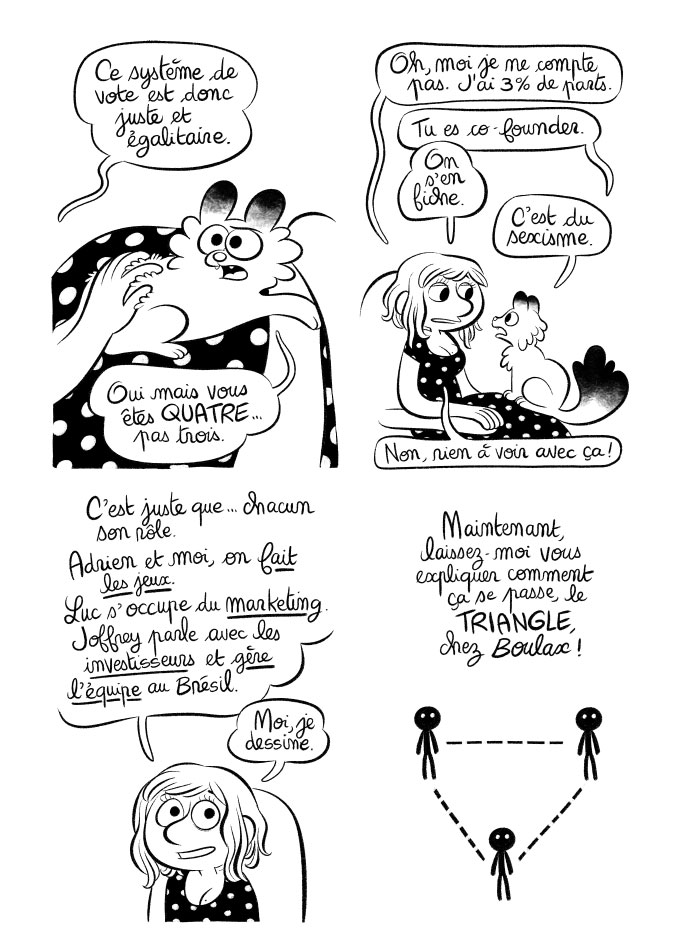 Ce système de
vote est donc
juste et
égalitaire.
Oui mais vous
êtes QUATRE...
pas trois.
Oh, moi je ne compte
pas. J'ai 3% de parts.
Tu es co-founder.
On
s'en
fiche.
C'est du
sexisme.
Non, rien à voir avec ça!
C'est juste que... chacun
son rôle.
Adrien et moi, on fait
les jeux.
Luc s'occupe du marketing.
Joffrey parle avec les
investisseurs et gère
l'équipe au Brésil.
Moi, je
dessine.
Maintenant,
laissez-moi vous
expliquer comment
ça se passe, le
TRIANGLE,
chez Boulax!